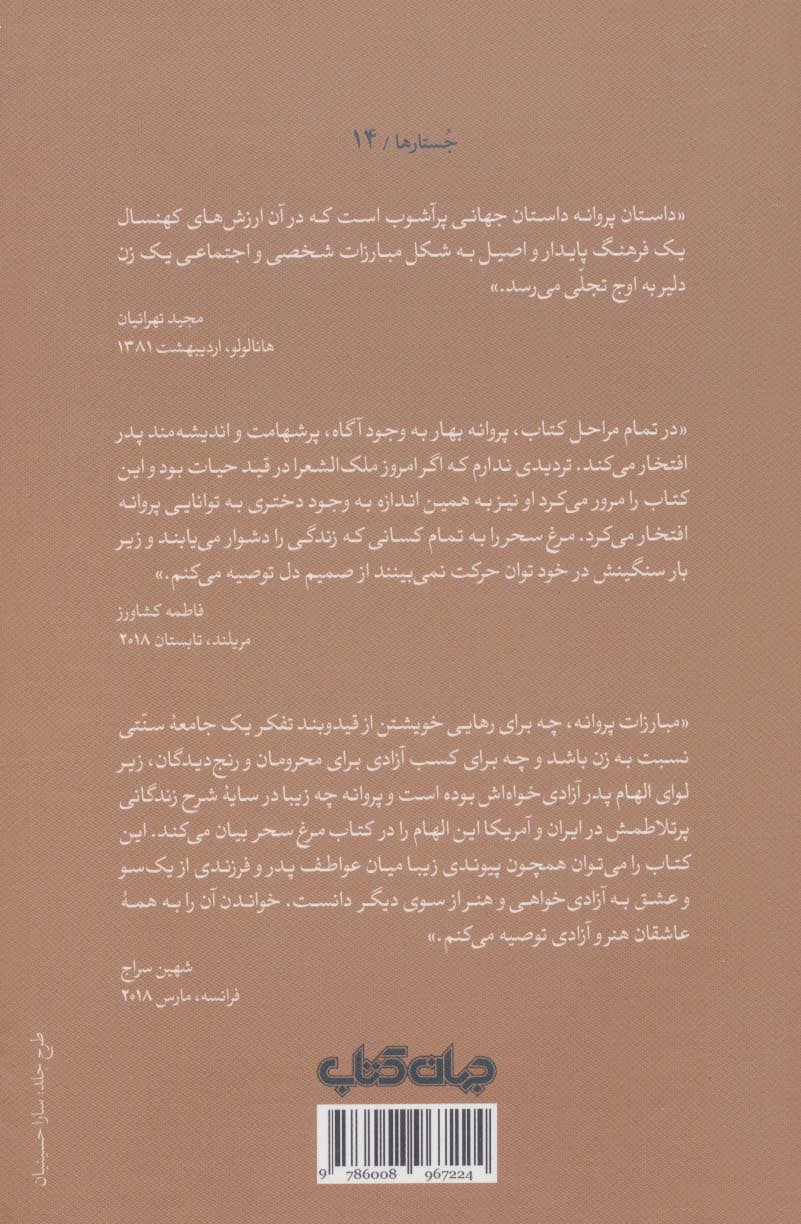 جُستارها / ۱۴
«داستان پروانه داستان جهانی پرآشوب است که در آن ارزش‌های کهنسال
یک فرهنگ پایدار و اصیل به شکل مبارزات شخصی و اجتماعی یک زن
دلیر به اوج تجلّی می‌رسد.»
مجید تهرانیان
هانالولو، اردیبهشت ۱۳۸۱
«در تمام مراحل کتاب، پروانه بهار به وجود آگاه، پرشهامت و اندیشه‌مند پدر
افتخار می‌کند. تردیدی ندارم که اگر امروز ملک‌الشعرا در قید حیات بود و این
کتاب را مرور می‌کرد او نیز به همین اندازه به وجود دختری به توانایی پروانه
افتخار می‌کرد. مرغ سحر را به تمام کسانی که زندگی را دشوار می‌یابند و زیر
بار سنگینش در خود توان حرکت نمی‌بینند از صمیم دل توصیه می‌کنم.»
فاطمه کشاورز
مریلند، تابستان ۲۰۱۸
«مبارزات پروانه، چه برای رهایی خویشتن از قیدوبند تفکر یک جامعهٔ سنّتی
نسبت به زن باشد و چه برای کسب آزادی برای محرومان و رنج‌دیدگان، زیر
لوای الهام پدر آزادی‌خواه‌اش بوده است و پروانه چه زیبا در سایهٔ شرح زندگانی
پرتلاطمش در ایران و آمریکا این الهام را در کتاب مرغ سحر بیان می‌کند. این
کتاب را می‌توان همچون پیوندی زیبا میان عواطف پدر و فرزندی از یک‌سو
و عشق به آزادی‌خواهی و هنر از سوی دیگر دانست. خواندن آن را به همهٔ
عاشقان هنر و آزادی توصیه می‌کنم.»
شهین سراج
فرانسه، مارس ۲۰۱۸
جهان کتاب
9 786008 967224
طرح جلد: سارا حسینیان